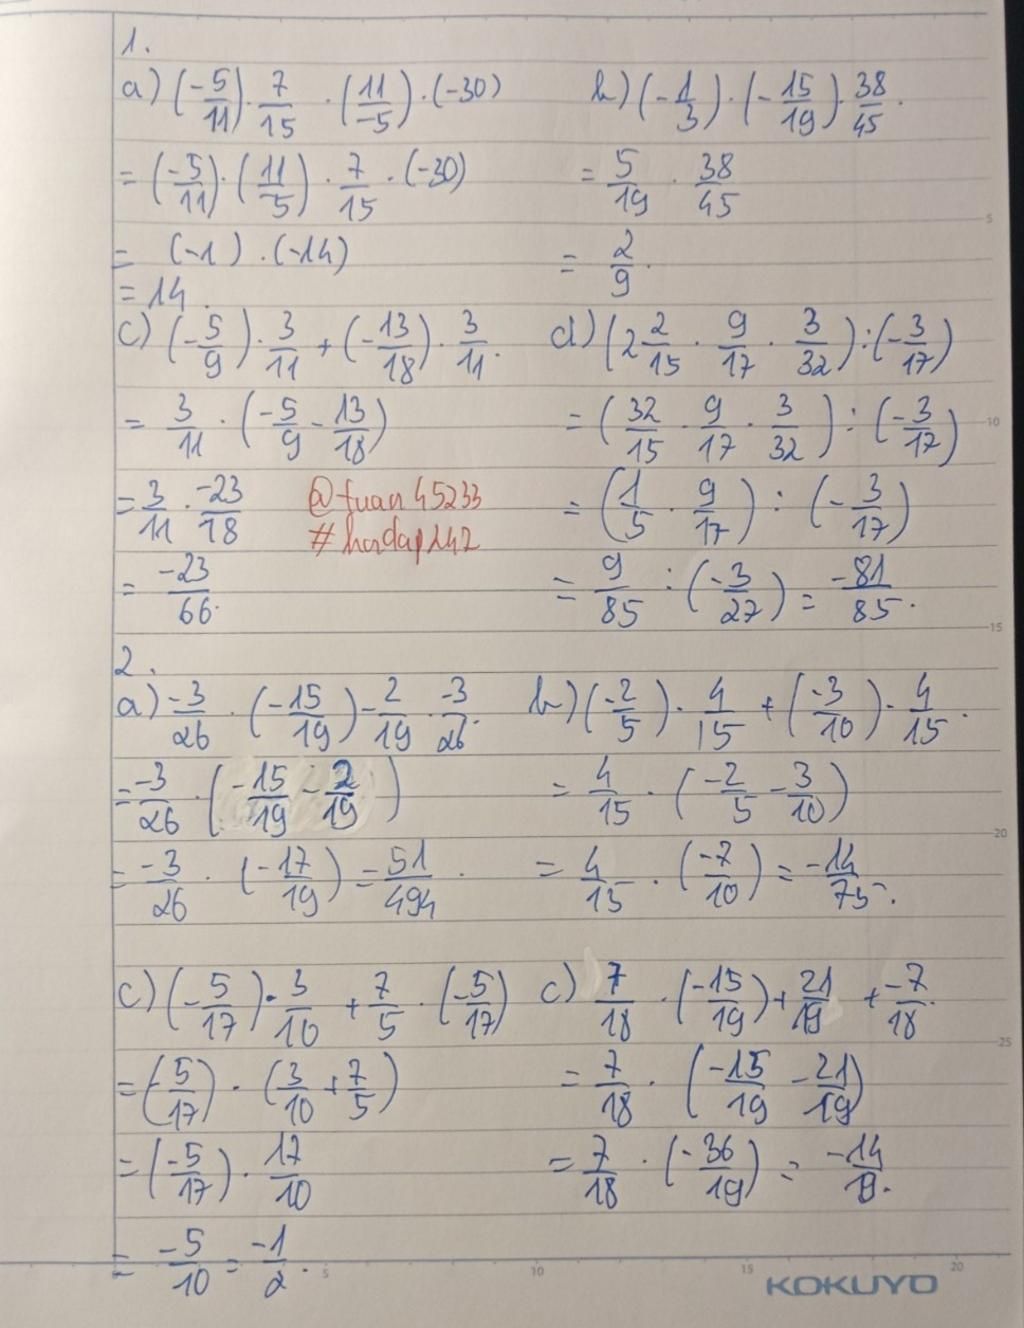 1.
a) (-5/11) . 7/15 . (11/-5) . (-30)
= (-5/11) . (11/-5) . 7/15 . (-30)
= (-1) . (-14)
= 14.
b) (-1/3) . (-15/19) . 38/45.
= 5/19 . 38/45
= 2/9.
c) (-5/9) . 3/11 + (-13/18) . 3/11.
= 3/11 . (-5/9 - 13/18)
= 3/11 . -23/18
= -23/66.
@tuan45233
d) (2 2/15 . 9/17 . 3/32) : (-3/17)
= (32/15 . 9/17 . 3/32) : (-3/17)
= (1/5 . 9/17) : (-3/17)
= 9/85 : (-3/27) = -81/85.
2.
a) -3/26 . (-15/19) - 2/19 . -3/26.
= -3/26 . (-15/19 - 2/19)
= -3/26 . (-17/19) = 51/494.
b) (-2/5) . 4/15 + (-3/10) . 4/15.
= 4/15 . (-2/5 - 3/10)
= 4/15 . (-7/10) = -14/75.
c) (-5/17) . 3/10 + 7/5 . (-5/17)
= (-5/17) . (3/10 + 7/5)
= (-5/17) . 17/10
= -5/10 = -1/2.
c) 7/18 . (-15/19) + 21/19 + -7/18.
= 7/18 . (-15/19 - 21/19)
= 7/18 . (-36/19) = -14/19.
5
10
15
20
25
5
10
15
20
KOKUYO